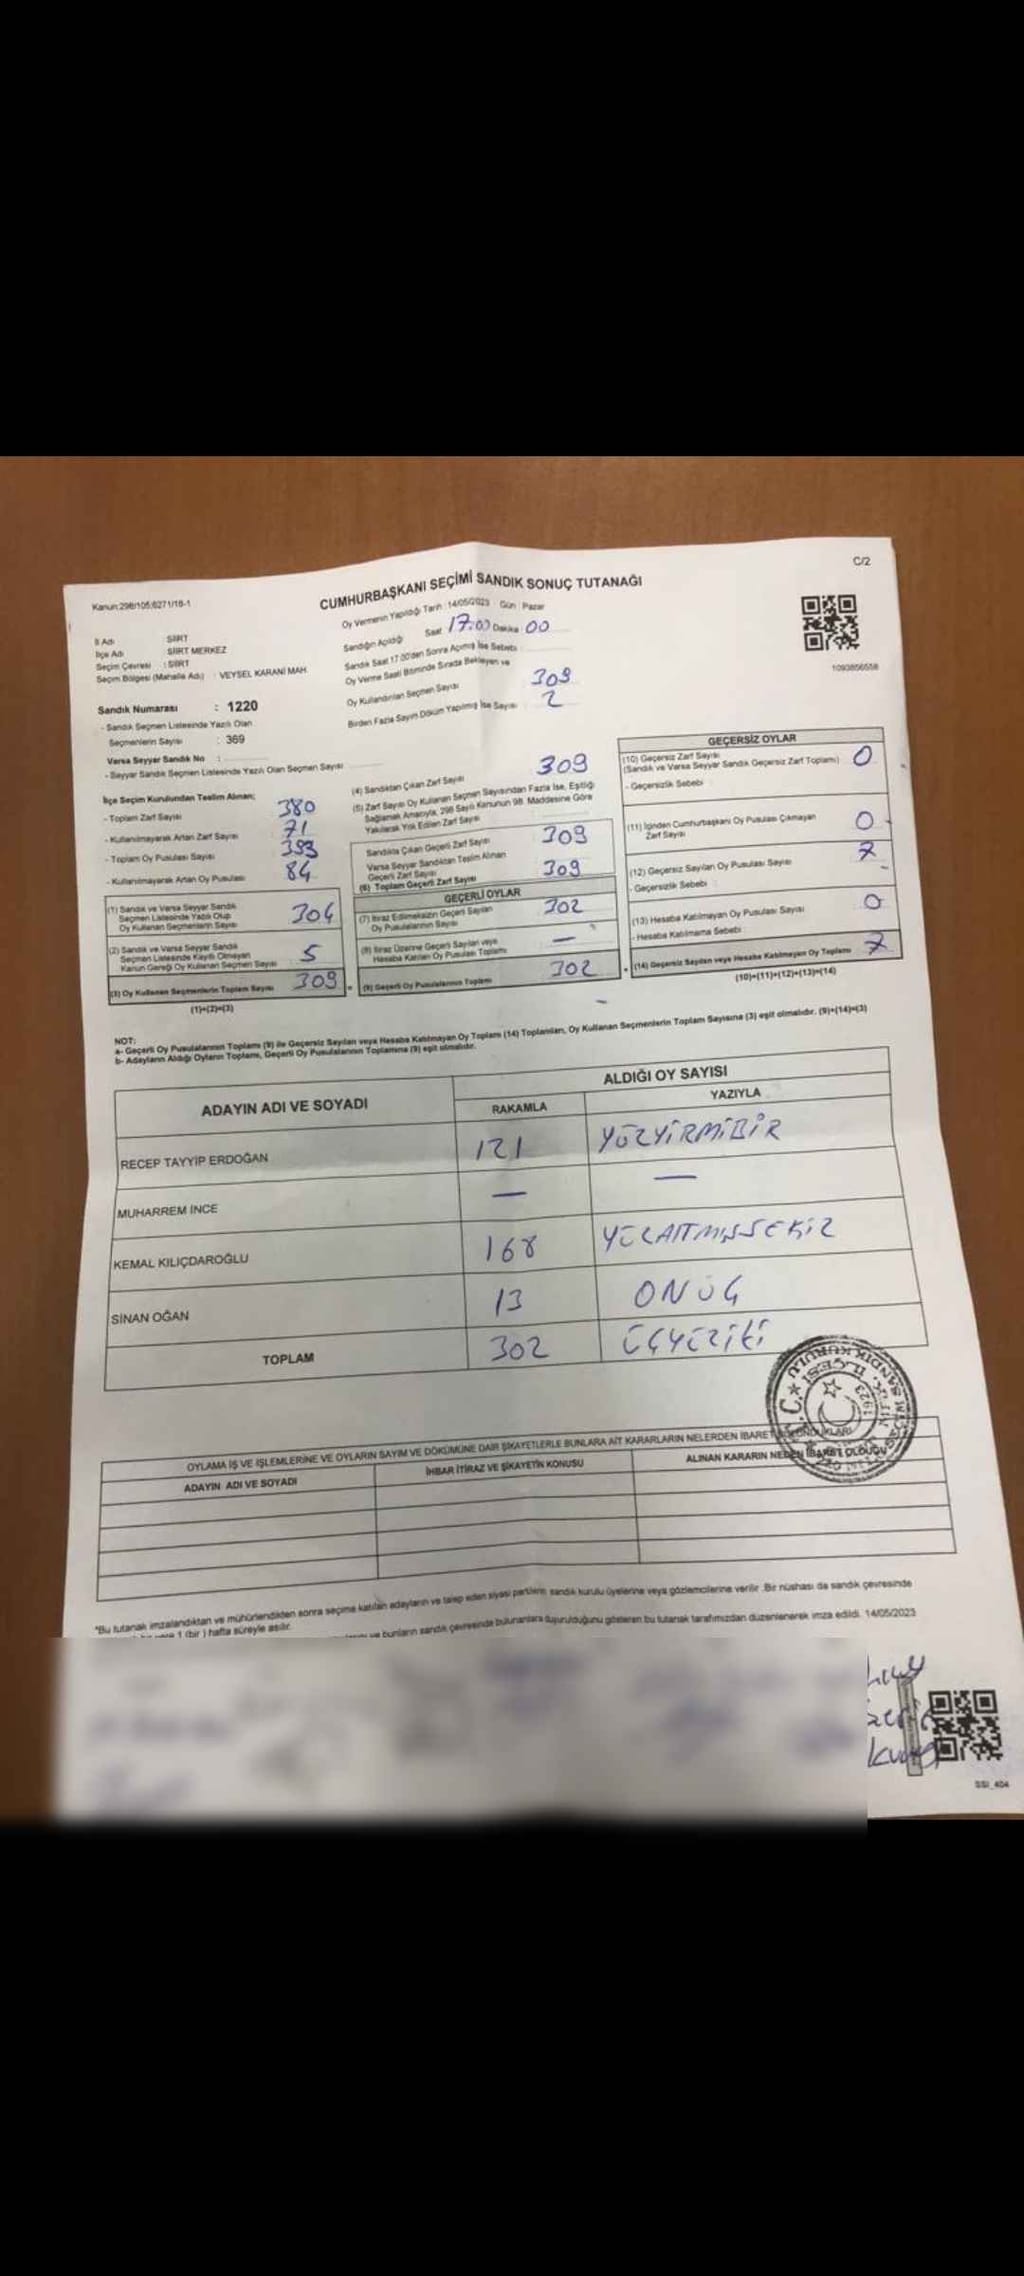 C/2
Kanun:298/105;6271/16-1
CUMHURBAŞKANI SEÇİMİ SANDIK SONUÇ TUTANAĞI
Oy Vermenin Yapıldığı Tarih : 14/05/2023 Gün : Pazar
İl Adı : SİİRT
İlçe Adı : SİİRT MERKEZ
Seçim Çevresi : SİİRT
Seçim Bölgesi (Mahalle Adı) : VEYSEL KARANİ MAH.
Sandığın Açıldığı Saat 17:00 Dakika : 00
Sandık Saat 17.00'den Sonra Açılmış İse Sebebi :
Oy Verme Saati Bitiminde Sırada Bekleyen ve
Oy Kullandırılan Seçmen Sayısı 309
Birden Fazla Sayım Döküm Yapılmış İse Sayısı : 2
1093856558
Sandık Numarası : 1220
- Sandık Seçmen Listesinde Yazılı Olan
Seçmenlerin Sayısı : 369
Varsa Seyyar Sandık No :
- Seyyar Sandık Seçmen Listesinde Yazılı Olan Seçmen Sayısı
İlçe Seçim Kurulundan Teslim Alınan;
- Toplam Zarf Sayısı 380
- Kullanılmayarak Artan Zarf Sayısı 71
- Toplam Oy Pusulası Sayısı 393
- Kullanılmayarak Artan Oy Pusulası 84
(1) Sandık ve Varsa Seyyar Sandık
Seçmen Listesinde Yazılı Olup
Oy Kullanan Seçmenlerin Sayısı 304
(2) Sandık ve Varsa Seyyar Sandık
Seçmen Listesinde Kayıtlı Olmayan
Kanun Gereği Oy Kullanan Seçmen Sayısı 5
(3) Oy Kullanan Seçmenlerin Toplam Sayısı 309
(1)+(2)=(3)
(4) Sandıktan Çıkan Zarf Sayısı 309
(5) Zarf Sayısı Oy Kullanan Seçmen Sayısından Fazla İse, Eşitliği
Sağlamak Amacıyla; 298 Sayılı Kanunun 98. Maddesine Göre
Yakılarak Yok Edilen Zarf Sayısı
Sandıkta Çıkan Geçerli Zarf Sayısı 309
Varsa Seyyar Sandıktan Teslim Alınan
Geçerli Zarf Sayısı
(6) Toplam Geçerli Zarf Sayısı 309
GEÇERLİ OYLAR
(7) İtiraz Edilmeksizin Geçerli Sayılan
Oy Pusulalarının Sayısı 302
(8) İtiraz Üzerine Geçerli Sayılan veya
Hesaba Katılan Oy Pusulası Toplamı —
(9) Geçerli Oy Pusulalarının Toplamı 302
GEÇERSİZ OYLAR
(10) Geçersiz Zarf Sayısı
(Sandık ve Varsa Seyyar Sandık Geçersiz Zarf Toplamı) 0
- Geçersizlik Sebebi :
(11) İçinden Cumhurbaşkanı Oy Pusulası Çıkmayan
Zarf Sayısı 0
(12) Geçersiz Sayılan Oy Pusulası Sayısı 7
- Geçersizlik Sebebi :
(13) Hesaba Katılmayan Oy Pusulası Sayısı 0
- Hesaba Katılmama Sebebi :
(14) Geçersiz Sayılan veya Hesaba Katılmayan Oy Toplamı 7
(10)+(11)+(12)+(13)=(14)
NOT:
a- Geçerli Oy Pusulalarının Toplamı (9) ile Geçersiz Sayılan veya Hesaba Katılmayan Oy Toplamı (14) Toplamları, Oy Kullanan Seçmenlerin Toplam Sayısına (3) eşit olmalıdır. (9)+(14)=(3)
b- Adayların Aldığı Oyların Toplamı, Geçerli Oy Pusulalarının Toplamına (9) eşit olmalıdır.
ADAYIN ADI VE SOYADI
ALDIĞI OY SAYISI
RAKAMLA YAZIYLA
RECEP TAYYİP ERDOĞAN 121 YÜZYİRMİBİR
MUHARREM İNCE — —
KEMAL KILIÇDAROĞLU 168 YÜZALTMIŞSEKİZ
SİNAN OĞAN 13 ONÜÇ
TOPLAM 302 ÜÇYÜZİKİ
OYLAMA İŞ VE İŞLEMLERİNE VE OYLARIN SAYIM VE DÖKÜMÜNE DAİR ŞİKAYETLERLE BUNLARA AİT KARARLARIN NELERDEN İBARET BULUNDUKLARI
ADAYIN ADI VE SOYADI İHBAR İTİRAZ VE ŞİKAYETİN KONUSU ALINAN KARARIN NEDEN İBARET OLDUĞU
T.C.
1923
SANDIK KURULU
*Bu tutanak imzalandıktan ve mühürlendikten sonra seçime katılan adayların ve talep eden siyasi partilerin sandık kurulu üyelerine veya gözlemcilerine verilir .Bir nüshası da sandık çevresinde
1 (bir ) hafta süreyle asılır.
ve bunların sandık çevresinde bulunanlara duyurulduğunu gösteren bu tutanak tarafımızdan düzenlenerek imza edildi. 14/05/2023
SSI_404